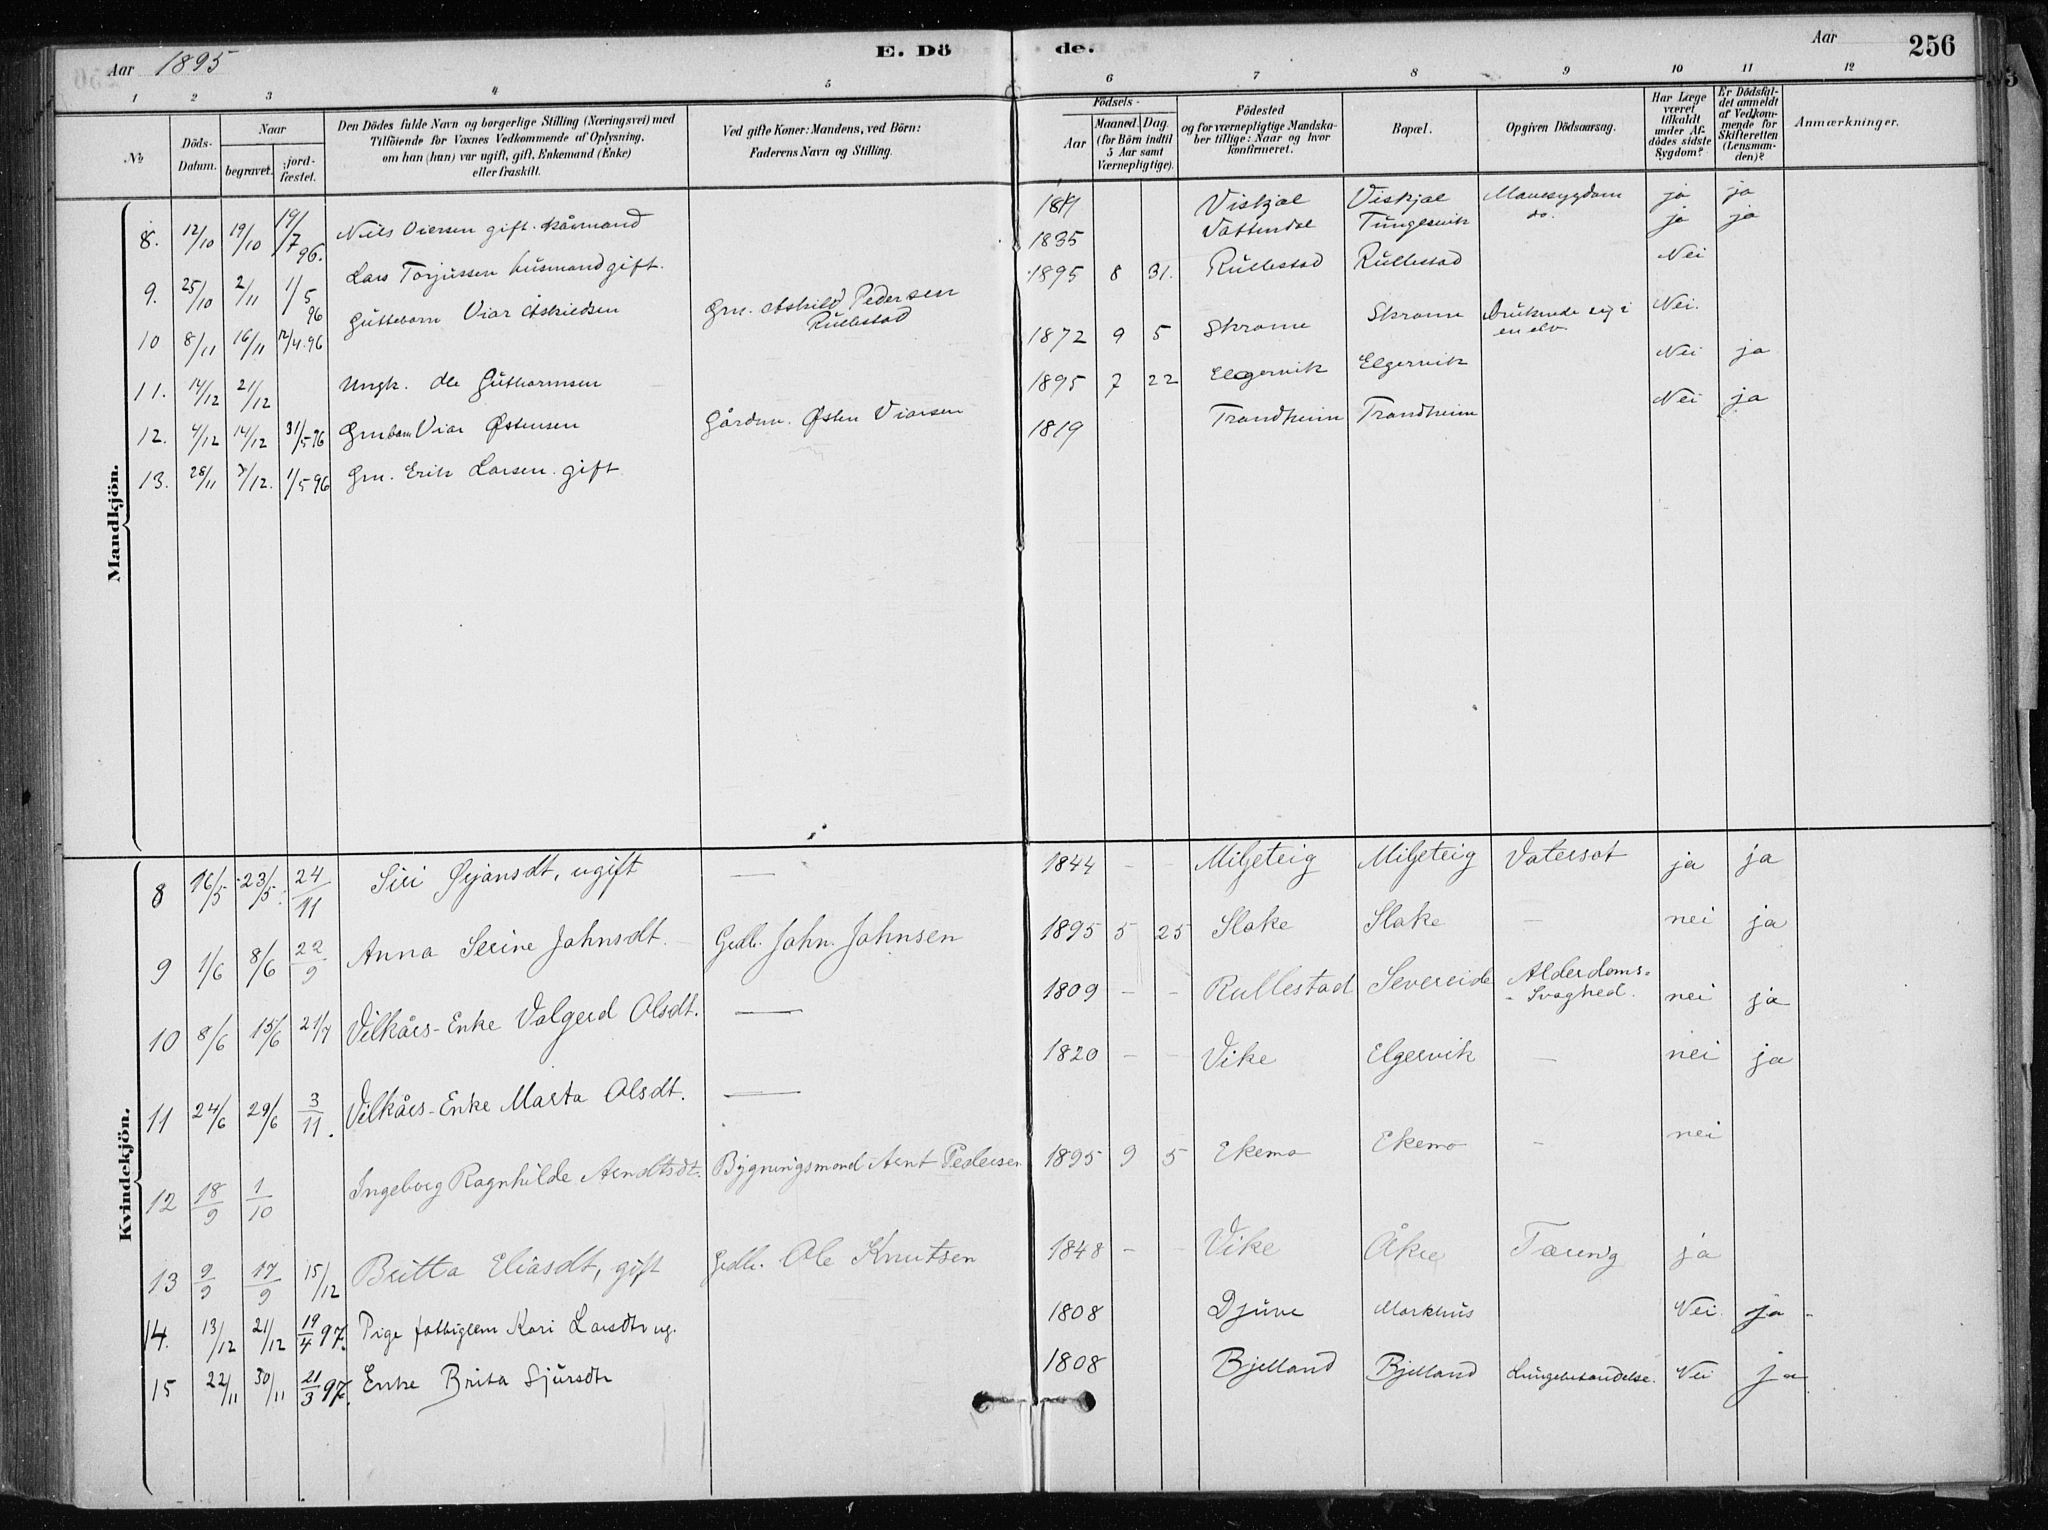 Aar 1895 E. Dö de. Aar 256
1 2 3 4 5 6 7 8 9 10 11 12
No
Döds-Datum.
Naar
begravet.
jordfæstet.
Den Dödes fulde Navn og borgerlige Stilling (Næringsvei) med Tilföiende for Voxnes Vedkommende af Oplysning, om han (hun) var ugift, gift, Enkemand (Enke) eller fraskilt.
Ved gifte Koner: Mandens, ved Börn: Faderens Navn og Stilling.
Födsels-
Aar
Maaned. Dag. (for Börn indtil 5 Aar samt Værnepligtige).
Födested og for værnepligtige Mandskaber tillige: Naar og hvor konfirmeret.
Bopæl.
Opgiven Dödsaarsag.
Har Læge været tilkaldt under Afdödes sidste Sygdom?
Er Dödsfaldet anmeldt af Vedkommende for Skifteretten (Lensmanden)?
Anmærkninger.
Mandkjön.
8. 12/10 19/10 19/7 96. Nils Viersen gift. Viskjal Viskjal Mavesygdom ja ja
9. 25/10 2/11 1/5 96 Lars Torjussen husmand gift. 1835 Vattendal Tungesvik do. ja ja
10 8/11 16/11 12/4.96 Guttebarn Viar Askildsen Grm. Askild Pedersen Rullestad 1895 8 31. Rullestad Rullestad Nei
11. 14/12 21/12 Ungk. Ole Guthormsen 1872 9 5 Skrome Skrome Druknede sig i en elv Nei.
12. 4/12 14/12 31/5-96 Grmbarn Viar Østensen Gårdm. Østen Viarsen 1895 7 22 Elgervik Elgervik Nei ja
13. 28/11 7/12. 1/5-96 Grm. Erik Larsen. gift 1819 Trondheim Trondheim Nei ja
Kvindekjön.
8 16/5 23/5 24/11 Siri Ørjansdt, ugift — 1844 - - Miljeteig Miljeteig Vatersot ja ja
9 1/6 8/6 22/9 Anna Serine Johnsdt. Grdbr. John Johnsen 1895 5 25 Slake Slake — nei ja
10 8/6 15/6 21/7 Vilkårs-Enke Valgerd Olsdt. — 1809 - - Rullestad Severeide Alderdoms-Svaghed. nei ja
11 24/6 29/6 3/11. Vilkårs-Enke Marta Olsdt. — 1820 - - Vike Elgervik — nei ja
12 18/9 1/10 Ingeborg Ragnhilde Arndtsdt. Bygningsmand Arnt Pedersen 1895 9 5 Ekemo Ekemo — nei
13 9/9 17/9 15/12 Britta Eliasdt, gift Grdbr. Ole Knutsen 1848 - - Vike Åkre Tæring ja
14. 13/12 21/12 19/4 97. Pige fattiglem Kari Larsdtr ug. 1808 Djuve Markhus Nei ja
15 22/11 30/11 21/3 97. Enke Brita Sjursdtr 1808 Bjelland Bjelland Nei ja